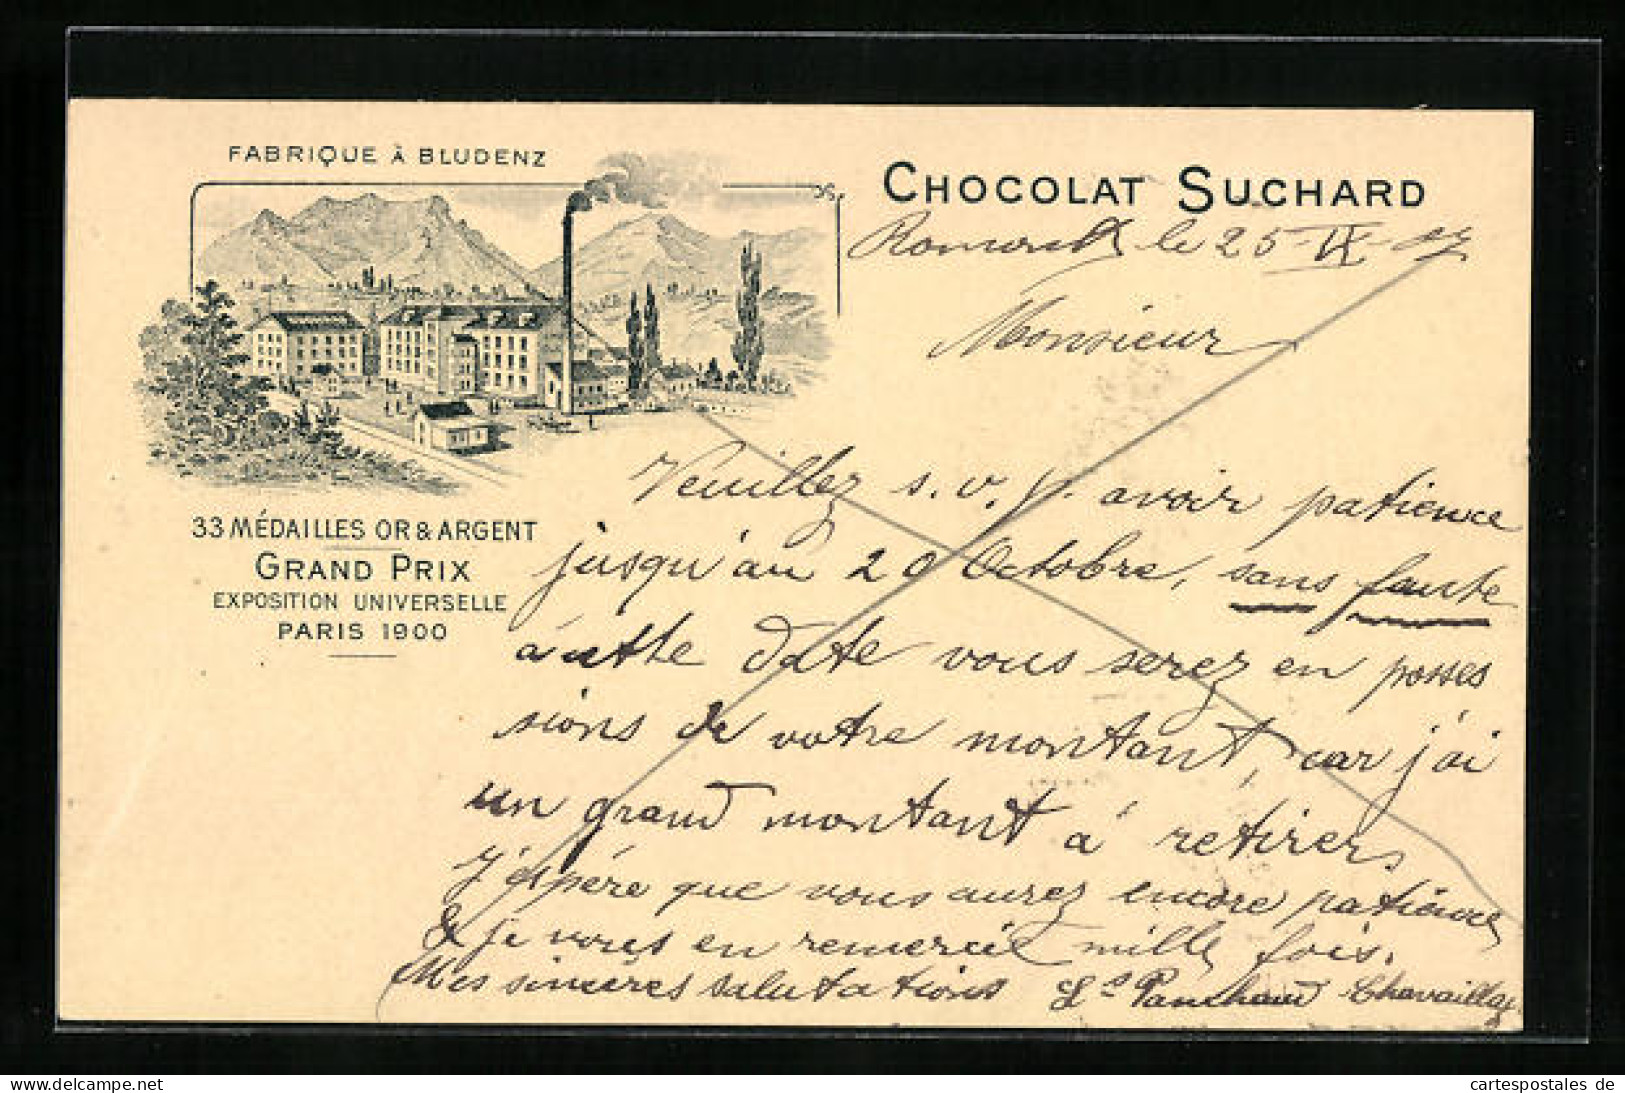 FABRIQUE À BLUDENZ
CHOCOLAT SUCHARD
Romont le 25 IX 07
Monsieur
Veuillez s. v. p. avoir patience
jusqu'au 20 Octobre, sans faute
à cette date vous serez en posses
sions de votre montant, car j'ai
un grand montant à retirer,
J'éspére que vous aurez encore patience
& je vous en remercie mille fois.
Mes sincéres salutations Ls Panchaud Chavaillaz
33 MÉDAILLES OR & ARGENT
GRAND PRIX
EXPOSITION UNIVERSELLE
PARIS 1900
www.delcampe.net
cartespostales de